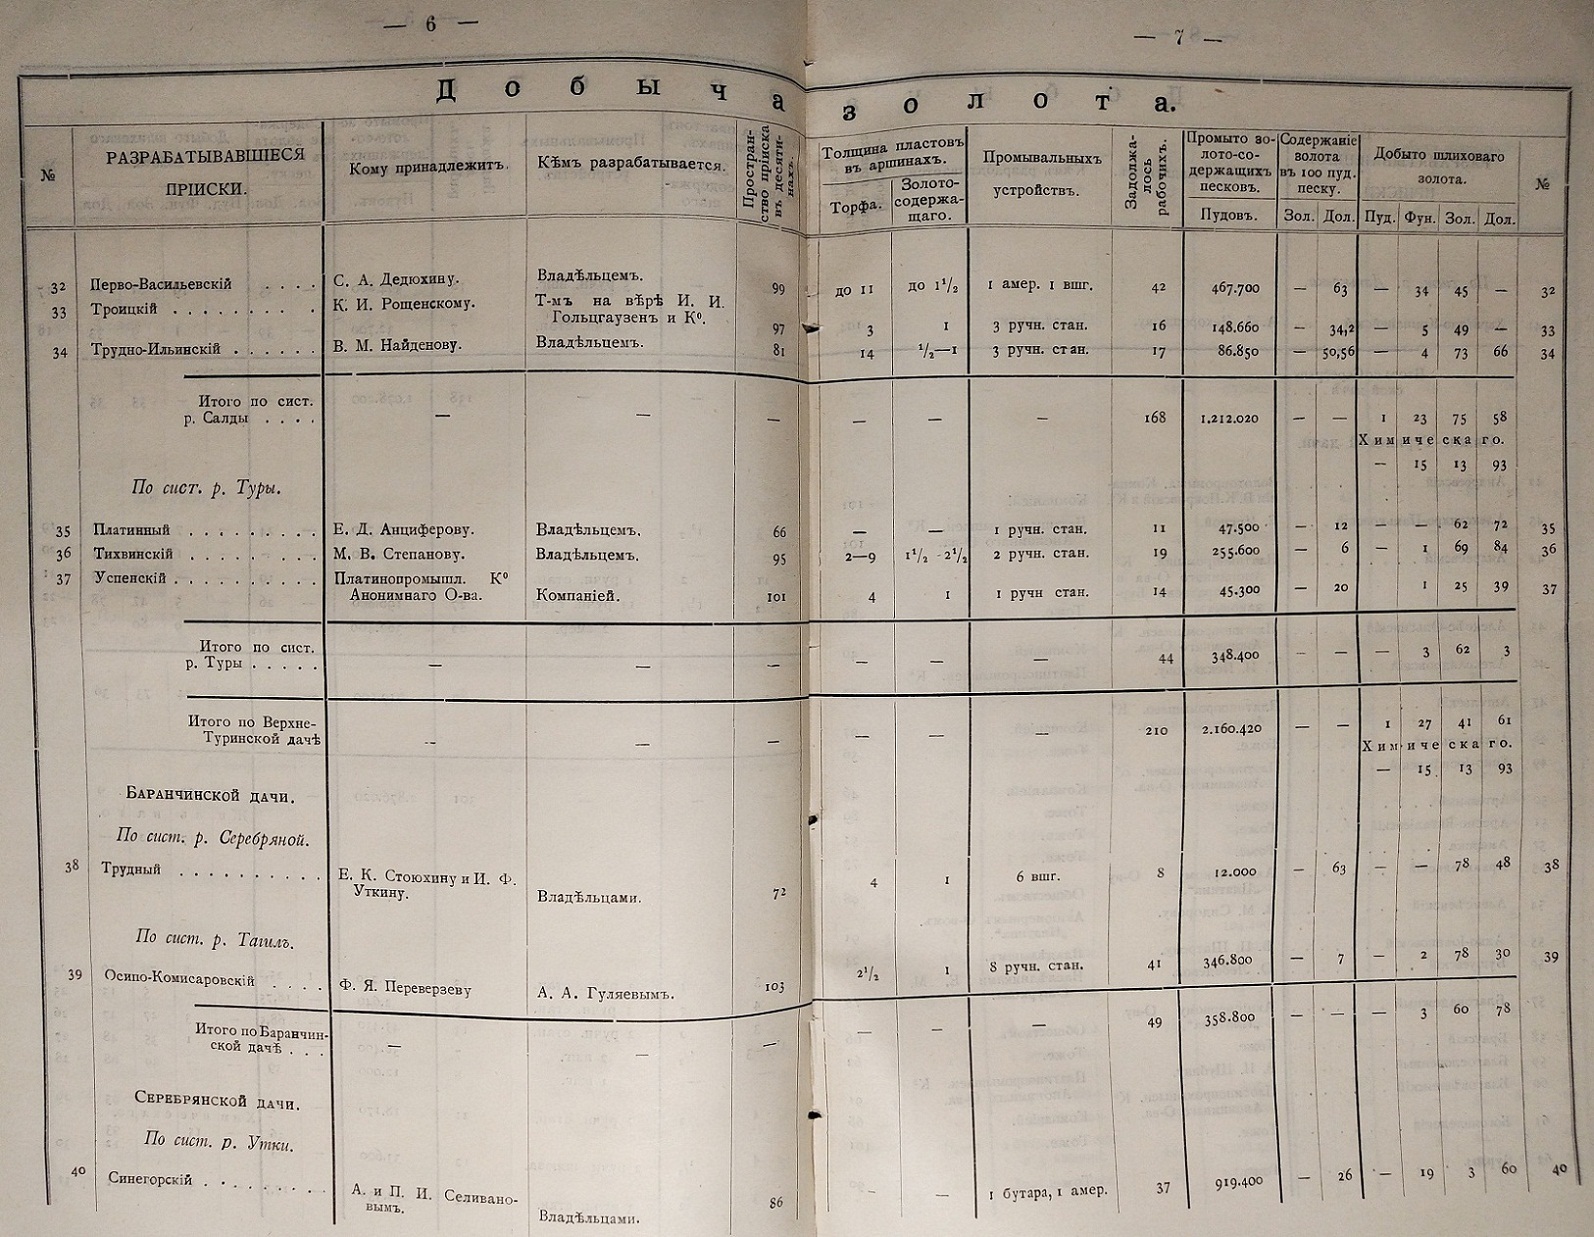 — 6 —
— 7 —
Добыча золота.
№ РАЗРАБАТЫВАВШІЕСЯ ПРІИСКИ. Кому принадлежитъ. Кѣмъ разрабатывается. Простран-ство пріиска въ десяти-нахъ. Толщина пластовъ въ аршинахъ. Торфа. Золото-содержа-щаго. Промывальныхъ устройствъ. Задолжа-лось рабочихъ. Промыто зо-лото-со-держащихъ песковъ. Пудовъ. Содержаніе золота въ 100 пуд. песку. Зол. Дол. Добыто шлиховаго золота. Пуд. Фун. Зол. Дол. №
32 Перво-Васильевскій . . . . С. А. Дедюхину. Владѣльцемъ. 99 до 11 до 1½ 1 амер. 1 вшг. 42 467.700 — 63 — 34 45 — 32
33 Троицкій . . . . . . . . . К. И. Рощенскому. Т-мъ на вѣрѣ И. И.
Гольцгаузен и К⁰. 97 3 1 3 ручн. стан. 16 148.660 — 34,2 — 5 49 — 33
34 Трудно-Ильинскій . . . . . . В. М. Найденову. Владѣльцемъ. 81 14 ½—1 3 ручн. стан. 17 86.850 — 50,56 — 4 73 66 34
Итого по сист.
р. Салды . . . . — — — — — — 168 1.212.020 — — 1 23 75 58
Химическаго.
— 15 13 93
По сист. р. Туры.
35 Платинный . . . . . . . . Е. Д. Анциферову. Владѣльцемъ. 66 — — 1 ручн. стан. 11 47.500 — 12 — — 62 72 35
36 Тихвинскій . . . . . . . . М. В. Степанову. Владѣльцемъ. 95 2—9 1½ - 2½ 2 ручн. стан. 19 255.600 — 6 — 1 69 84 36
37 Успенскій . . . . . . . . . Платинопромышл. К⁰
Анонимнаго О-ва. Компаніей. 101 4 1 1 ручн стан. 14 45.300 — 20 1 25 39 37
Итого по сист.
р. Туры . . . . . — — — — — — 44 348.400 — — — 3 62 3
Итого по Верхне-
Туринской дачѣ — — — — — — 210 2.160.420 — — 1 27 41 61
Химическаго.
— 15 13 93
БАРАНЧИНСКОЙ ДАЧИ.
По сист. р. Серебряной.
38 Трудный . . . . . . . . . . Е. К. Стоюхину и И. Ф.
Уткину. Владѣльцами. 72 4 1 6 вшг. 8 12.000 — 63 — — 78 48 38
По сист. р. Тагилъ.
39 Осипо-Комисаровскій . . . . Ф. Я. Переверзеву А. А. Гуляевымъ. 103 2½ 1 8 ручн. стан. 41 346.800 — 7 — 2 78 30 39
Итого по Баранчин-
ской дачѣ . . . — — — — — — 49 358.800 — — — 3 60 78
СЕРЕБРЯНСКОЙ ДАЧИ.
По сист. р. Утки.
40 Синегорскій . . . . . . . . А. и П. И. Селивано-
вымъ. Владѣльцами. 86 — — 1 бутара, 1 амер. 37 919.400 — 26 — 19 3 60 40